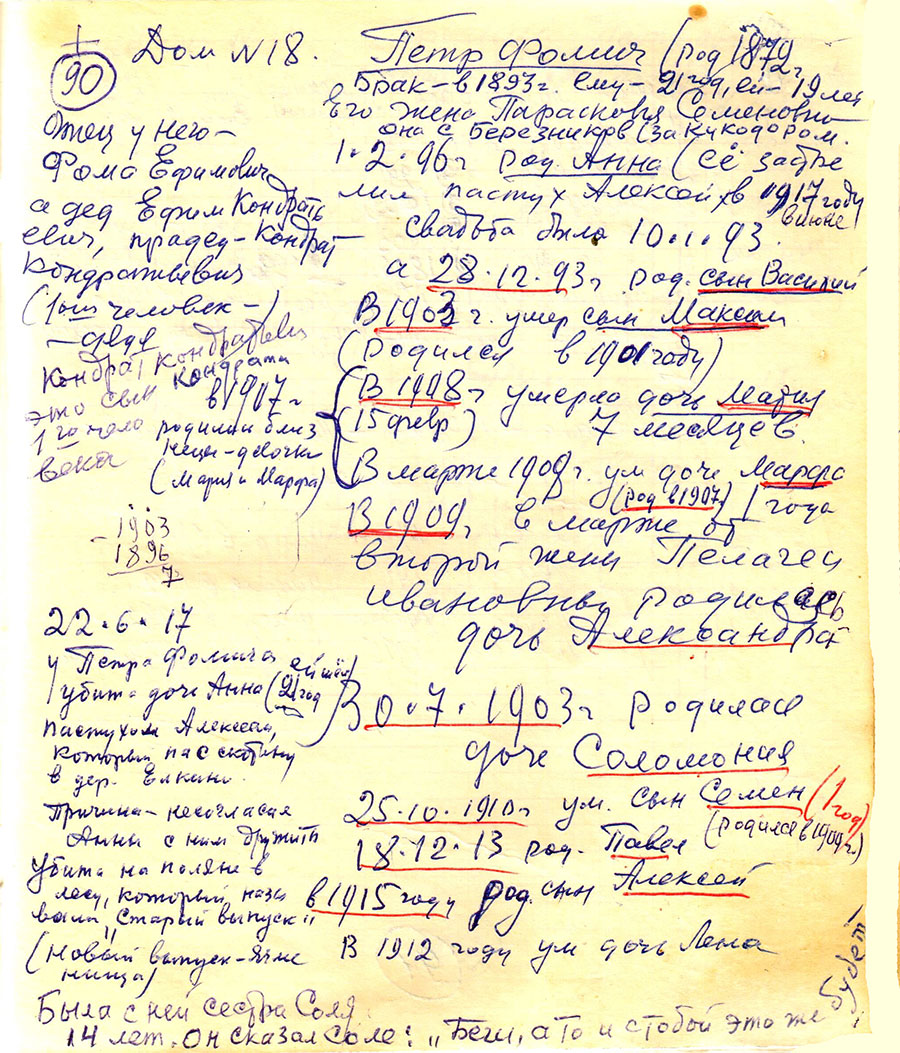 90
Дом N 18. Петр Фомич (род 1872г
Брак - в 1893г. ему - 21 год, ей - 19 лет
Его жена Парасковья Семеновна
она с Березников (за Кукодором.
1.2.96г род. Анна (Её застре
лил пастух Алексей в 1917 году
в июне
Свадьба была 10.1.93.
а 28.12.93г род. сын Василий
В 1903г. умер сын Максим
(родился в 1901 году)
В 1908г умерла дочь Мария
(15 февр) 7 месяцев.
В марте 1908г. ум дочь Марфа
(род в 1907) 1 года
В 1909г в марте от
второй жены Пелагеи
Ивановны родилась
дочь Александра
30.7.1903г родилась
дочь Соломония
25.10.1910г ум. сын Семен (1 год)
(родился в 1909г.)
18.12.13 род. Павел
в 1915 году род. сын Алексей
В 1912 году ум дочь Лена
Отец у него -
Фома Ефимович
а дед Ефим Кондрать
евич, прадед - Кондрат
Кондратьевич
(1ый человек -)
- деде
Кондрат Кондратович
это сын Кондрата
1го чело
века
в 1907г
родились близ
нецы - девочки
(Мария и Марфа)
- 1903
1896
7
22.6.17
у Петра Фомича
убита дочь Анна (ей шёл 21 год)
пастухом Алексеем,
который пас скотину
в дер. Елкино.
Причина - несогласие
Анны с ним дружить
Убита на поляне в
лесу, который назы
вали "Старый выпуск"
(новый выпуск - Ячме
нища)
Была с ней сестра Соля
14 лет. Он сказал Соле: "Беги, а то и с тобой это же
будет!